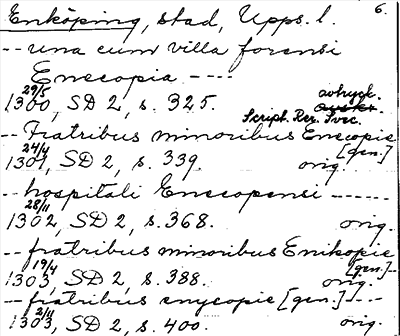 Enköping, stad, Upps. l. 6.
-- una cum villa forensi
Enecopia ----
29/5 avtryck.
1300, SD 2, s. 325.
Script. Rer. Svec.
-- Fratribus minoribus Enecopie
24/4 [gen.]
1301, SD 2, s. 339. orig.
-- hospitali Enecopensi ------
28/11
1302, SD 2, s. 368. orig.
-- fratribus minoribus Enikopie
19/4 [gen.]--
1303, SD 2, s. 388. orig.
-- fratribus enycopie [gen.]---
2/11
1303, SD 2, s. 400. orig.